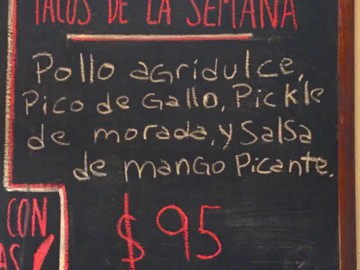 TACOS DE LA SEMANA
Pollo agridulce,
Pico de Gallo, Pickle
de morada, y Salsa
de mango Picante.
$95
CON